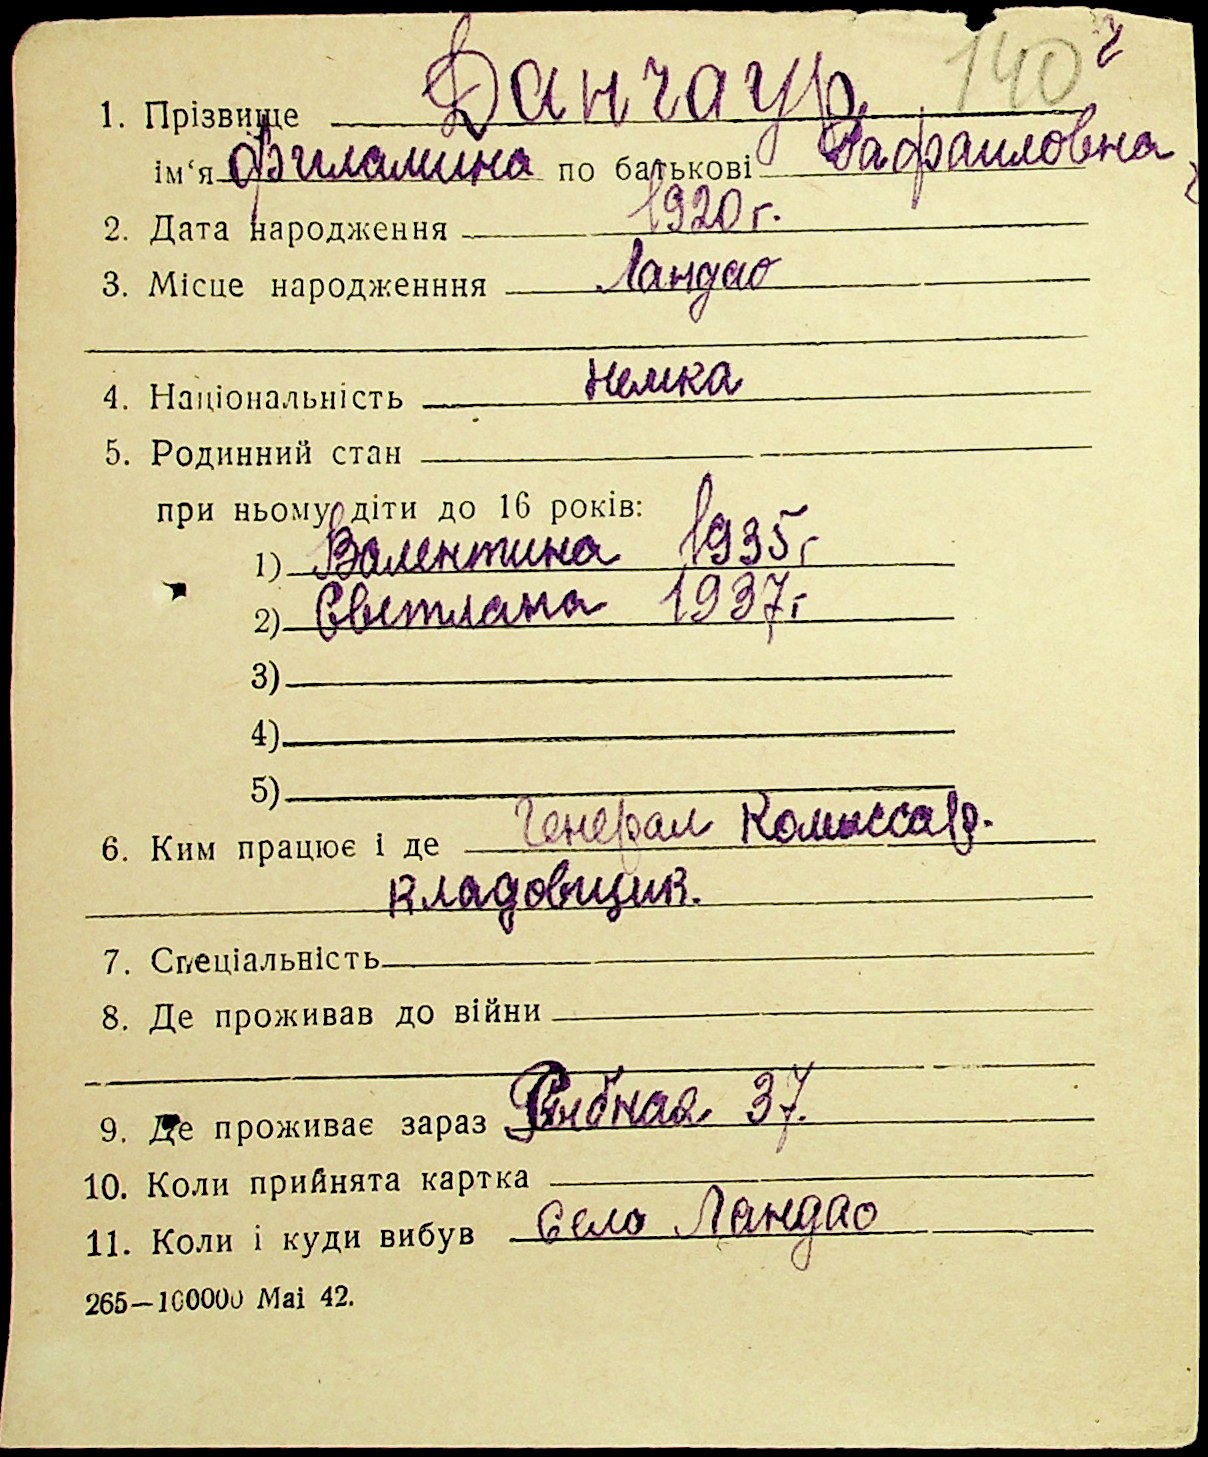 140
1. Прізвище Данчаур
ім‘я Филамина по батькові Рафаиловна
2. Дата народження 1920 г.
3. Місце народженння Ландао
4. Національність немка
5. Родинний стан
при ньому діти до 16 років:
1) Валентина 1935 г
2) Светлана 1937 г
3)
4)
5)
6. Ким працює і де Генерал Комиссар.
кладовщик.
7. Спеціальність
8. Де проживав до війни
9. Де проживає зараз Рыбная 37.
10. Коли прийнята картка
11. Коли і куди вибув Село Ландао
265—100000 Маі 42.